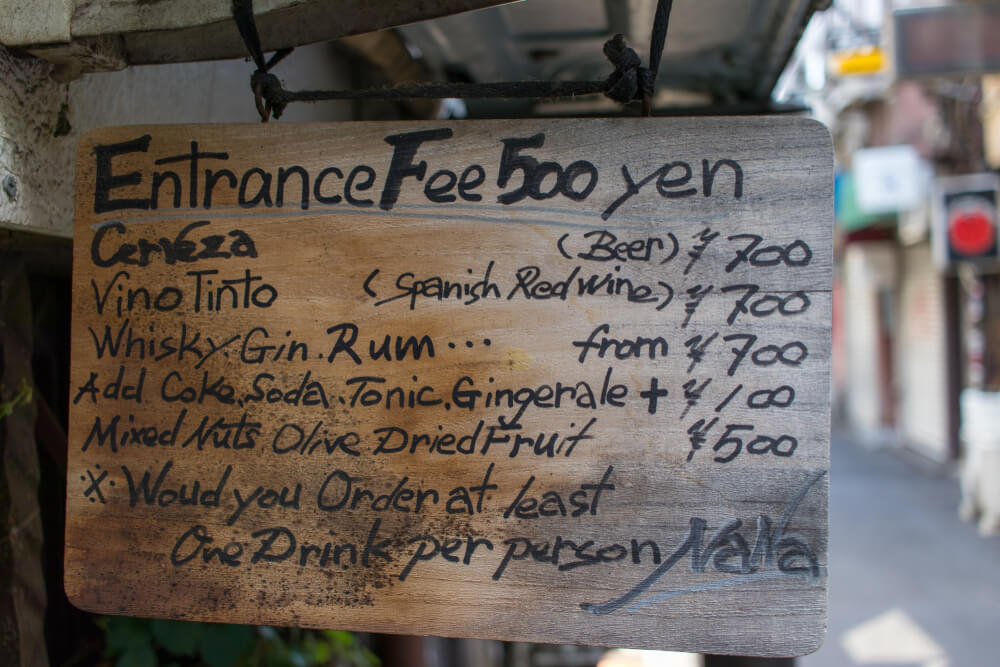 Entrance Fee 500 yen
Cerveza (Beer) ¥700
Vino Tinto (Spanish Red wine) ¥700
Whisky. Gin. Rum ... from ¥700
Add Coke. Soda. Tonic. Gingerale + ¥100
Mixed Nuts Olive Dried Fruit ¥500
※ Woud you Order at least
One Drink per person NaNa